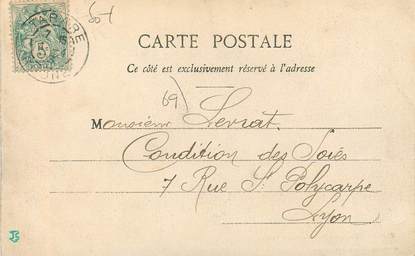 60-1
TARARE
CARTE POSTALE
Ce côté est exclusivement réservé à l'adresse
69
Monsieur Levrat.
Condition des Soies
7 Rue St Polycarpe
Lyon